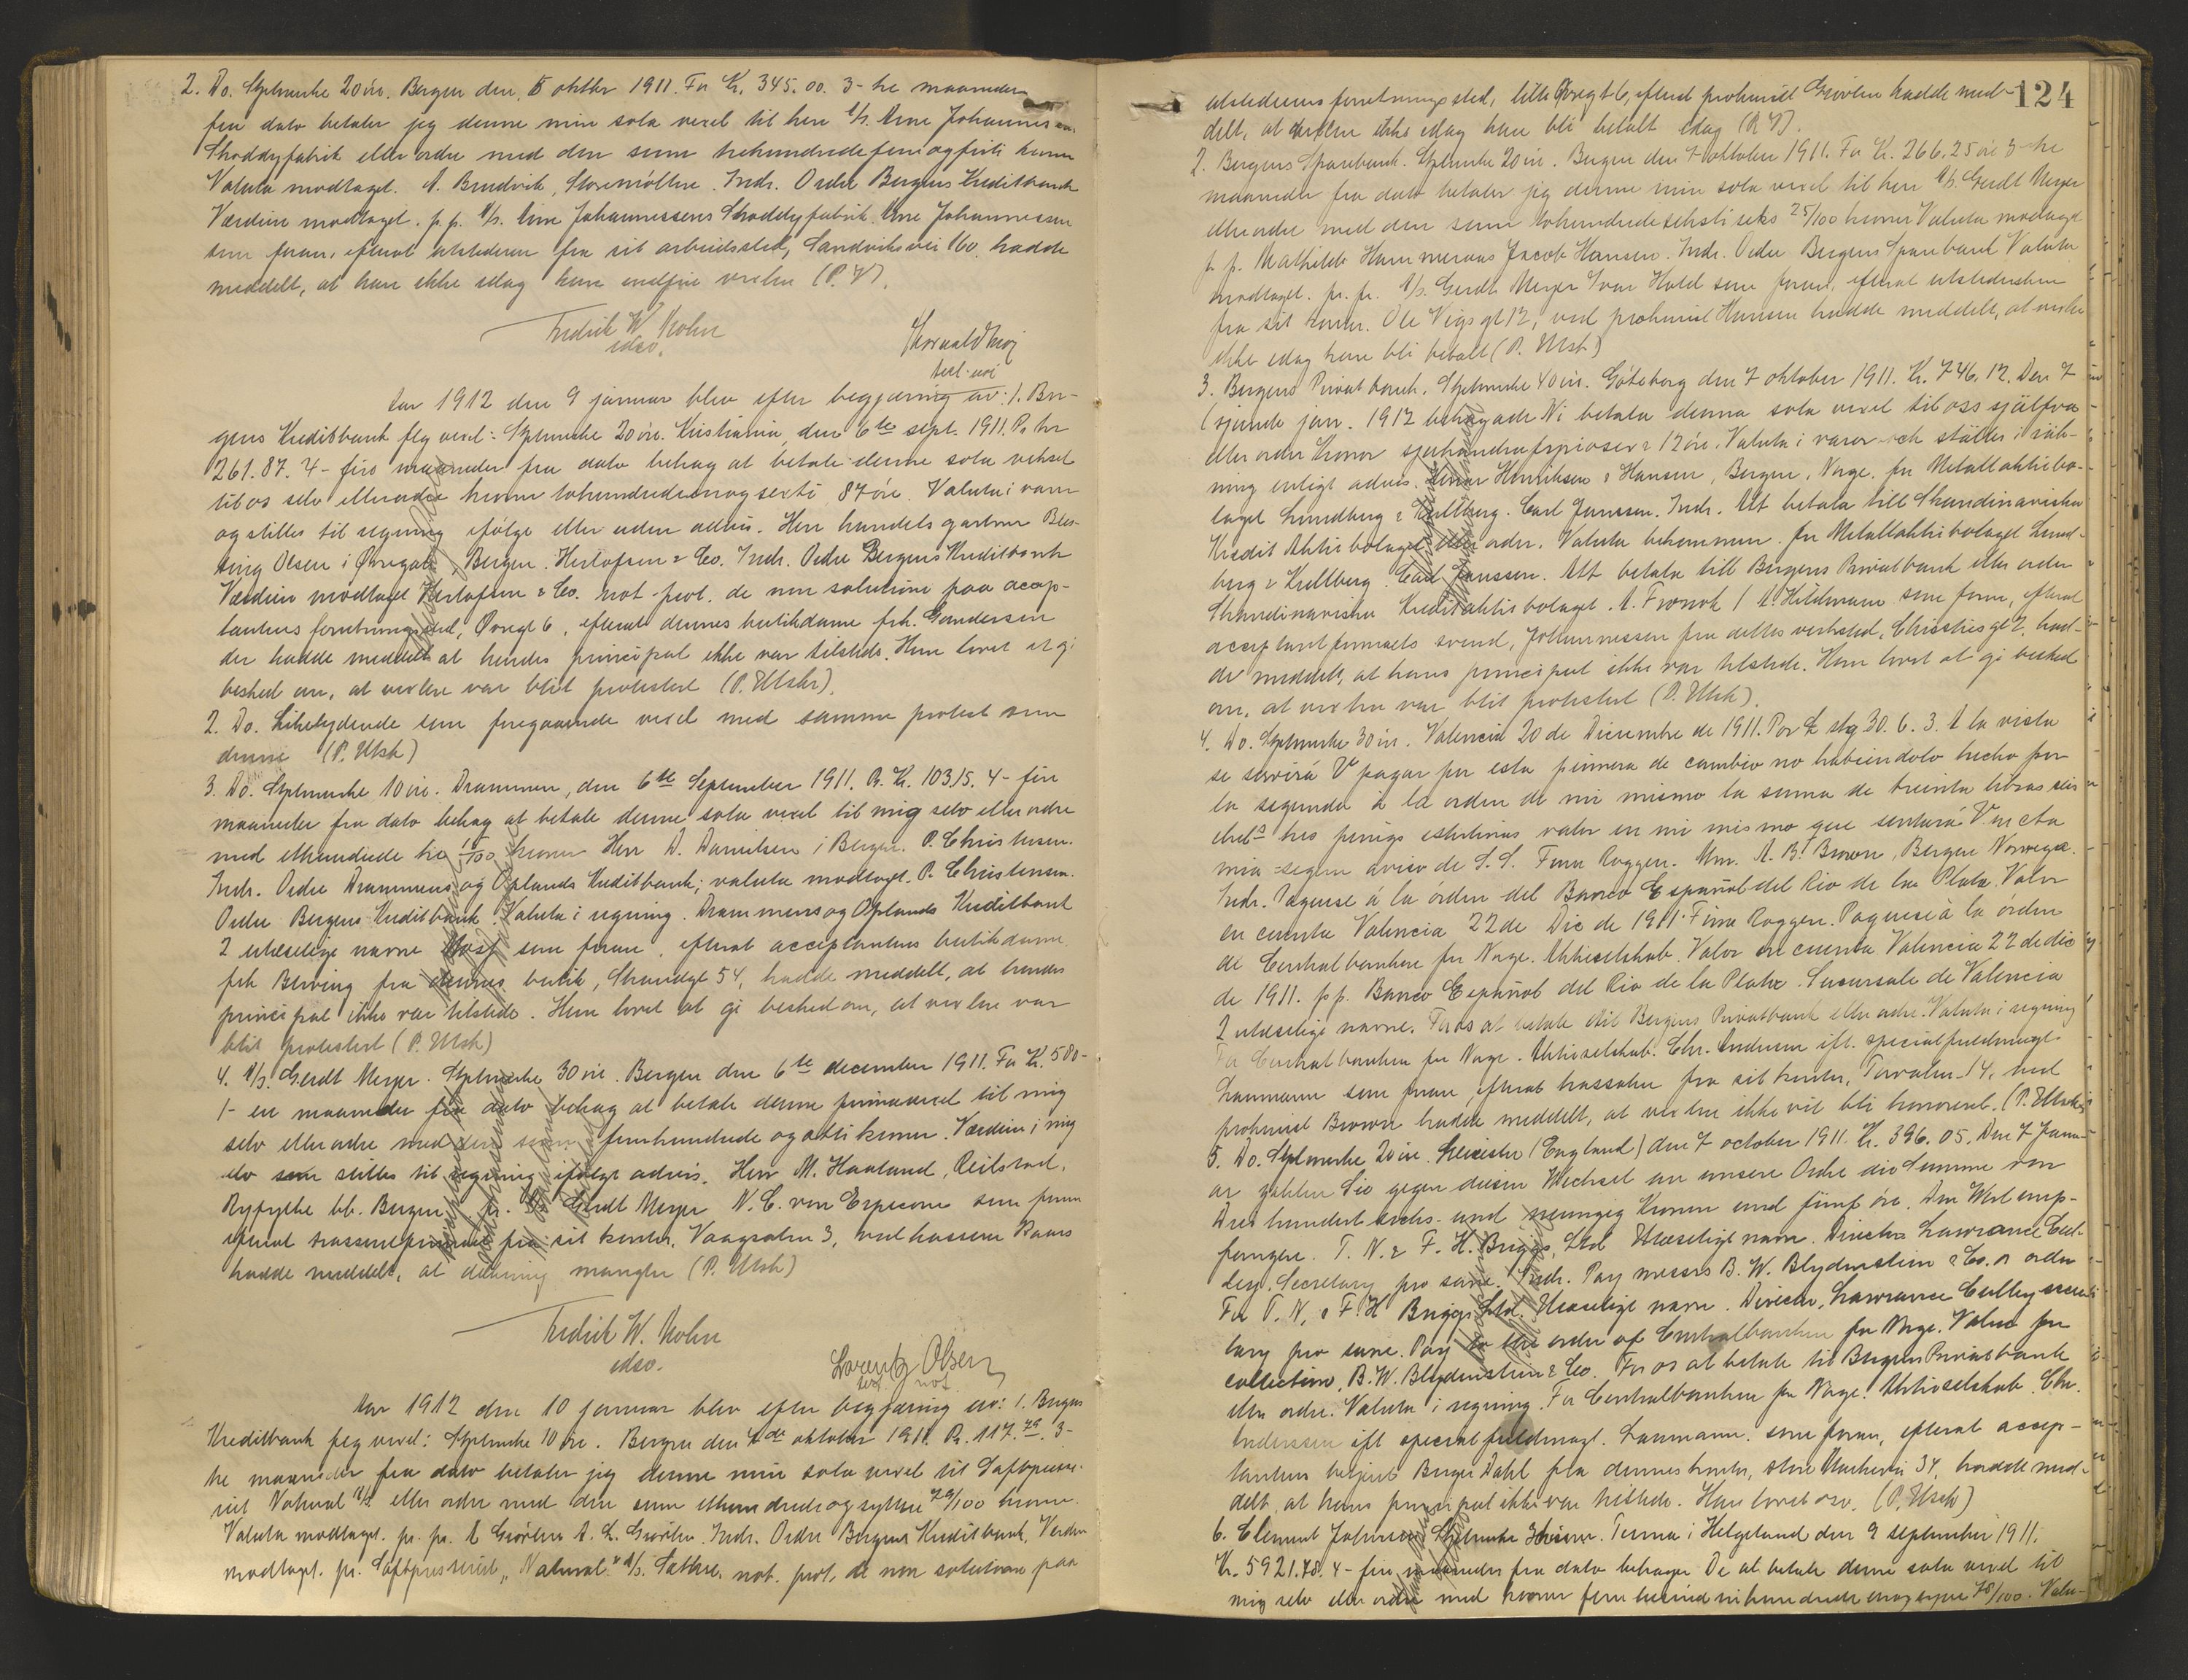 2. Do. Stplmerke 20 øre. Bergen den 5 oktbr 1911. For Kr. 345.00. 3- tre maaneder
fra dato betaler jeg denne min sola vexel til herr A/S. Arne Johannesens
Shoddyfabrik eller ordre med den sum trehundredefemogfirti kroner
Valuta modtaget. A. Brudvik, Storemøllen. Indr. Ordre Bergens Kreditbank
Værdien modtaget. p.p. A/S. Arne Johannessens Shoddyfabrik Arne Johannessen
som foran, efterat utstederen fra sit arbeidssted, Sandviksvei 160, hadde
meddelt, at han ikke idag kan indfri vexlen (P. V).
Fredrik W. Krohn
edsv.
Aar 1912 den 9 januar blev efter begjæring av: 1. Ber-
gens Kreditbank flg vexel: Stplmerke 20 øre. Kristiania, den 6te sept. 1911. Pr. Kr
261.87. 4- fire maaneder fra dato behag at betale denne sola veksel
til os selv eller ordre kroner tohundredeenogseksti 87 øre. Valuta i varer
og stilles til regning ifølge eller uden advis. Herr handelsgartner
Olsen i Øvregate, Bergen. Herlofsen & Co. Indr. Ordre Bergens Kreditbank
Værdien modtaget Herlofsen & Co. not. prot. de non solutione paa accep-
tantens forretningssted, Øvregt 6, efterat dennes butikdame frk. Gundersen
der hadde meddelt at hendes principal ikke var tilstede. Hun lovet at gi
besked om, at vexlen var blit protestert (P. Utsk.).
2. Do. Likelydende som foregaaende vexel med samme protest som
denne (P. Utsk)
3. Do. Stplmerke 10 øre. Drammen, den 6te September 1911. Pr. Kr. 103.15. 4- fire
maaneder fra dato behag at betale denne sola vexel til mig selv eller ordre
med ethundrede tre 15/100 kroner Herr D. Danielsen i Bergen. P. Christensen.
Indr. Ordre Drammens og Oplands Kreditbank; valuta modtaget. P. Christensen.
Ordre Bergens Kreditbank. Valuta i regning. Drammens og Oplands Kreditbank
2 ulæselige navne som foran, efterat acceptantens butikdame
frk Berving fra dennes butik, Strandgt 54, hadde meddelt, at hendes
principal ikke var tilstede. Hun lovet at gi besked om, at vexlen var
blit protestert (P. Utsk)
4. A/S. Gerdt Meyer. Stplmerke 30 øre. Bergen den 6te december 1911. For Kr. 580-
1- en maaneder fra dato behag at betale denne primavexel til mig
selv eller ordre med den sum femhundrede og otti kroner. Værdien i mig
selv som stilles til regning ifølge advis. Herr M. Haaland,
Ryfylke bb. Bergen. A/S Gerdt Meyer N. C. von Erpecom som foran
efterat trassentfirmaet fra sit kontor, Vaagsalm 3, ved kasserer
hadde meddelt, at dekning mangler (P. Utsk)
Fredrik W. Krohn
edsv.
Lorentz Olsen
test. not.
Aar 1912 den 10 januar blev efter begjæring av: 1. Bergens
Kreditbank flg vexel: Stplmerke 10 øre. Bergen den 7de oktober 1911. Pr. 117.79. 3-
tre maaneder fra dato betaler jeg denne min sola vexel til Saftpresse-
riet Natural A/S eller ordre med den sum ethundredeogsytten 79/100 kroner.
Valuta modtaget. pr. pr. A Grorlien A. L. Grorlien. Indr. Ordre Bergens Kreditbank. Værdien
modtaget. pr. Saftpresseriet "Natural" A/S. Sæthre. not. prot. de non solutione paa
124
utstederens forretningssted, lille Øvregt 6, efterat prokurist hadde med-
delt, at vexlen ikke idag kan bli betalt idag (P. V).
2. Bergens Sparebank. Stplmerke 20 øre. Bergen den 7 oktober 1911. For Kr. 266.25 øre 3- tre
maaneder fra dato betaler jeg denne min sola vexel til herr A/S. Gerdt Meyer
eller ordre med den sum tohundredeseksti seks 25/100 kroner Valuta modtaget
p. p. Mathilde Hammeraas Jacob Hansen. Indr. Ordre Bergens Sparebank Valuta
modtaget. pr. pr. A/S. Gerdt Meyer Ivar Hold som foran, efterat utstedersken
fra sit kontor. Ole Vigsgt 12, ved prokurist Hansen hadde meddelt, at vexlen
ikke idag kan bli betalt (P. Utsk)
3. Bergens Privatbank. Stplmerke 40 øre. Göteborg den 7 oktober 1911. Kr. 746.12. Den 7
(sjunde jan. 1912 behagade Ni betala denna sola vexel til oss själfva
eller order Kronor sjuhundrafyrtiosex & 12 öre. Valuta i varor och ställes i räk-
ning enligt advis. Henriksen & Hansen, Bergen, Norge. för Metallaktiebo-
laget Lundberg & Kullberg. Carl Janssen. Indr. Att betala till Skandinaviska
Kredit Aktiebolaget eller order. Valuta bekommen. för Metallaktiebolaget Lund-
berg & Kullberg. Carl Janssen. Att betala till Bergens Privatbank eller order
Skandinaviska Kreditaktiebolaget. A. Fromk / A. Hildman som foran, efterat
acceptantfirmaets svend, Johannessen fra dettes verksted, Christiesgt 2, had-
de meddelt, at hans principal ikke var tilstede. Han lovet at gi besked
om, at vexlen var blit protestert (P. Utsk).
4. Do. Stplmerke 30 øre. Valencia 20 de Diciembre de 1911. Por £ stg 30.6.3. A la vista
se servirá V pagar por esta primera de cambio no habiendolo hecho por
la segunda à la orden de mi mismo la suma de treinta libras seis
chels tres peniqs esterlinas valor en mi mismo que sentará V en cta
mia segun aviso de S. S. Finn Roggen. Mm. A. B. Brown, Bergen Noruega.
Indr. Paguese á la órden del Banco Español del Rio de la Plata. Valor
en cuenta Valencia 22 de Dic de 1911. Finn Roggen. Paguese à la órden
de Centralbanken for Norge. Aktieselskab. Valor en cuenta Valencia 22 de dic
de 1911. pp. Banco Español del Rio de la Plata. Sucursale de Valencia
2 ulæselige navne. For os at betale til Bergens Privatbank eller ordre. Valuta i regning
For Centralbanken for Norge. Aktieselskab. Chr. Anderssen ifl. specialfuldmagt
Laumann som foran, efterat trassaten fra sit kontor, Torvalm. 14, ved
prokurist Brown hadde meddelt, at vexlen ikke vil bli honoreret. (P. Utsk)
5. Do. Stplmerke 20 øre. Leicester (England) den 7 october 1911. Kr. 396.05. Den 7 Janu-
ar zahlen Sie gegen diesen Wechsel an unsere Ordre die Summe von
Drei hundert sechs- und neunzig Kronen und fünf öre. Den Wert emp-
fangen. T. N. & F. H. Briggs, Ltd Ulæseligt navn. Director Lawrance Cul-
ley, Secretary pro same. Indr. Pay messrs B. W. Blydenstein & Co. or order
For T. N. & F. H Briggs Ltd. Ulæseligt navn. Director, Lawrance Culley secre-
tary pro same. Pay to the order of Centralbanken for Norge. Value for
collection, B. W. Blydenstein & Co. For os at betale til Bergens Privatbank
eller ordre. Valuta i regning. For Centralbanken for Norge. Aktieselskab. Chr.
Anderssen ifl specialfuldmagt. Laumann. som foran, efterat accep-
tantens betjent Birger Dahl fra dennes kontor, store Markevei 34, hadde med-
delt, at hans principal ikke var tilstede. Han lovet osv. (P. Utsk)
6. Clement Johnsen. Stplmerke 3 kroner. Tenna i Helgeland den 9 september 1911.
Kr. 5921.78. 4- fire maaneder fra dato behager De at betale denne sola vexel til
mig selv eller ordre med kroner fem tusind nihundrede enogtyve 78/100. Valu-